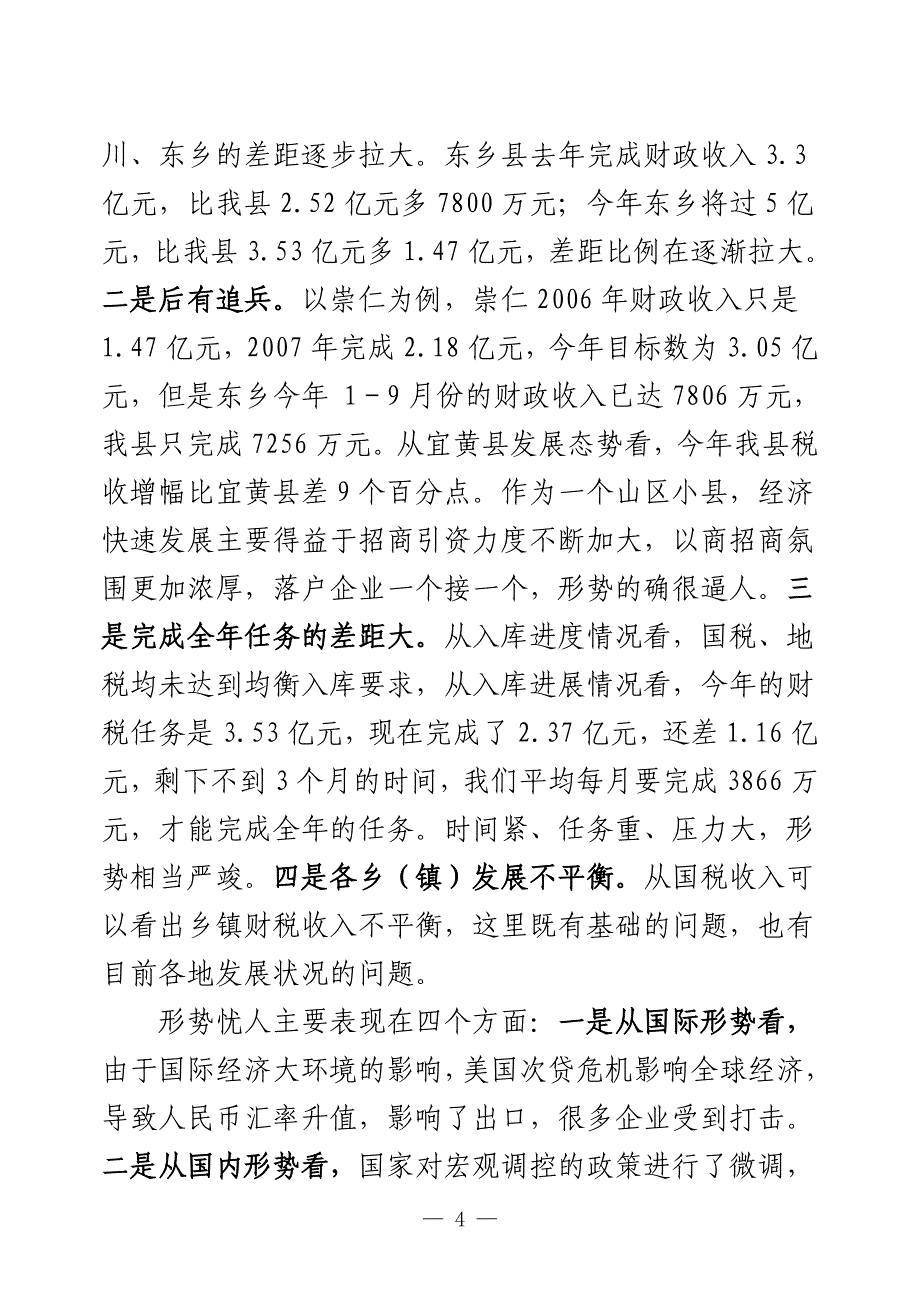 川、东乡的差距逐步拉大。东乡县去年完成财政收入 3.3
亿元，比我县 2.52 亿元多 7800 万元；今年东乡将过 5 亿
元，比我县 3.53 亿元多 1.47 亿元，差距比例在逐渐拉大。
二是后有追兵。以崇仁为例，崇仁 2006 年财政收入只是
1.47 亿元，2007 年完成 2.18 亿元，今年目标数为 3.05 亿
元，但是东乡今年 1-9 月份的财政收入已达 7806 万元，
我县只完成 7256 万元。从宜黄县发展态势看，今年我县税
收增幅比宜黄县差 9 个百分点。作为一个山区小县，经济
快速发展主要得益于招商引资力度不断加大，以商招商氛
围更加浓厚，落户企业一个接一个，形势的确很逼人。三
是完成全年任务的差距大。从入库进度情况看，国税、地
税均未达到均衡入库要求，从入库进展情况看，今年的财
税任务是 3.53 亿元，现在完成了 2.37 亿元，还差 1.16 亿
元，剩下不到 3 个月的时间，我们平均每月要完成 3866 万
元，才能完成全年的任务。时间紧、任务重、压力大，形
势相当严竣。四是各乡（镇）发展不平衡。从国税收入可
以看出乡镇财税收入不平衡，这里既有基础的问题，也有
目前各地发展状况的问题。
形势忧人主要表现在四个方面：一是从国际形势看，
由于国际经济大环境的影响，美国次贷危机影响全球经济，
导致人民币汇率升值，影响了出口，很多企业受到打击。
二是从国内形势看，国家对宏观调控的政策进行了微调，
— 4 —